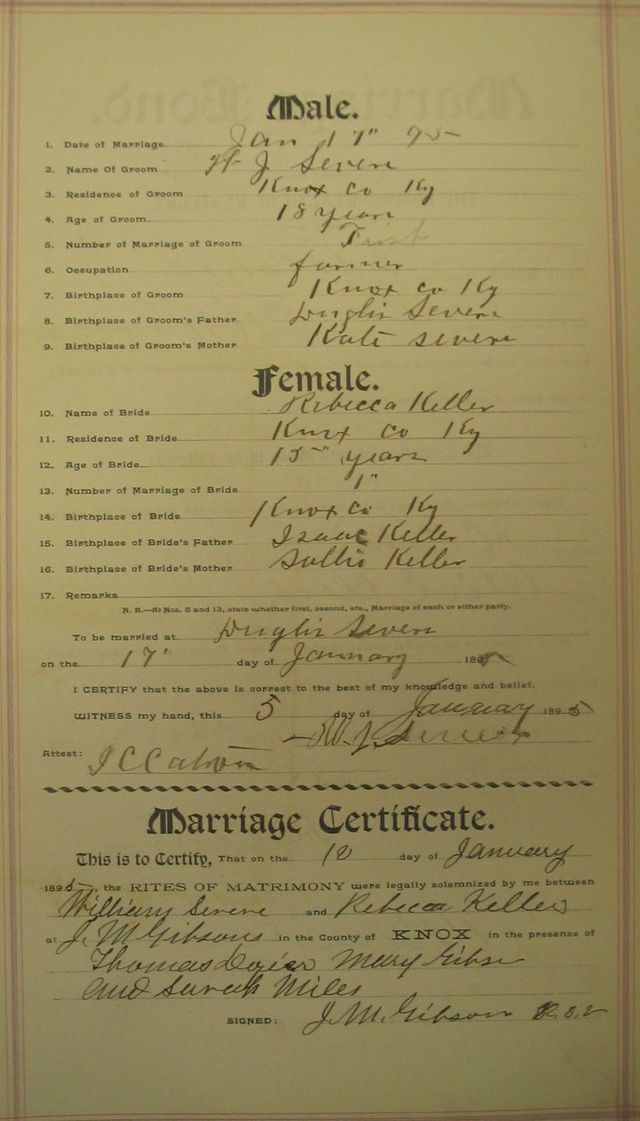 Male.
1. Date of Marriage Jan 17" 95
2. Name Of Groom W J Severe
3. Residence of Groom Knox co Ky
4. Age of Groom 18 years
5. Number of Marriage of Groom First
6. Occupation farmer
7. Birthplace of Groom Knox co Ky
8. Birthplace of Groom's Father Severe
9. Birthplace of Groom's Mother Kate severe
Female.
10. Name of Bride Rebecca Keller
11. Residence of Bride Knox co Ky
12. Age of Bride 15" years
13. Number of Marriage of Bride 1"
14. Birthplace of Bride Knox co Ky
15. Birthplace of Bride's Father Isaac Keller
16. Birthplace of Bride's Mother Sallie Keller
17. Remarks
N. B.—At Nos. 5 and 13, state whether first, second, etc., Marriage of each or either party.
To be married at Severe
on the 17" day of January 189
I CERTIFY that the above is correct to the best of my knowledge and belief.
WITNESS my hand, this 5 day of January 1895
W. J. Severe
Attest:
Marriage Certificate.
This is to Certify, That on the day of January
1895, the RITES OF MATRIMONY were legally solemnized by me between
William Severe and Rebecca Keller
at J. M Gibsons in the County of KNOX in the presence of
Thomas Mary
and Sarah Miles
SIGNED: J. M. Gibson